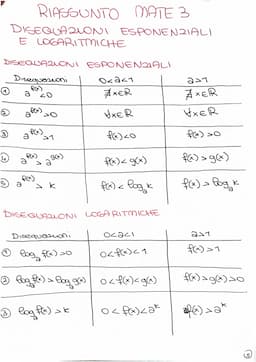 RIASSUNTO MATE 3
DISEQUAZIONI ESPONENZIALI
E LOGARITMICHE
DISEQUAZIONI ESPONENZIALI
Disequazioni 0<a<1 a>1
① a^f(x) <0 ∄x∈R ∄x∈R
② a^f(x) >0 ∀x∈R ∀x∈R
③ a^f(x) >1 f(x)<0 f(x)>0
④ a^f(x) > a^g(x) f(x)<g(x) f(x)>g(x)
⑤ a^f(x) > k f(x) < log_a k f(x) > log_a k
DISEQUAZIONI LOGARITMICHE
Disequazioni 0<a<1 a>1
① log_a f(x) >0 0<f(x)<1 f(x)>1
② log_a f(x) > log_a g(x) 0<f(x)<g(x) f(x)>g(x)>0
③ log_a f(x) >k 0<f(x)<a^k f(x) >a^k